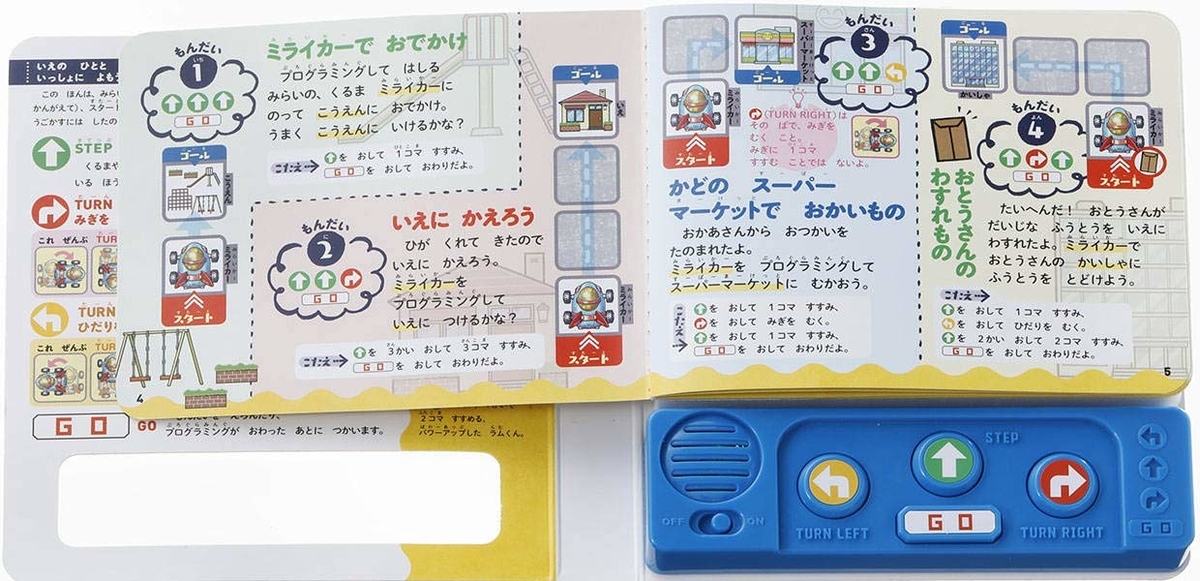 いえの ひとと
いっしょに よもう
この ほんは、みらい
かんがえて)、スタート
うごかすには したの
STEP
くるまや
いる ほう
TURN
みぎを
これ ぜんぶ TUR
TURN
ひだりを
これ ぜんぶ TUR
GO
GO
プログラミングが おわった あとに つかいます。
2コマ すすめる、
パワーアップした ラムくん。
もんだい
1
GO
ミライカーで おでかけ
プログラミングして はしる
みらいの、くるま ミライカーに
のって こうえんに おでかけ。
うまく こうえんに いけるかな?
こたえ
を おして 1コマ すすみ、
GO を おして おわりだよ。
ゴール
こうえん
ミライカー
スタート
4
もんだい
2
GO
いえに かえろう
ひが くれて きたので
いえに かえろう。
ミライカーを
プログラミングして
いえに つけるかな?
こたえ
を 3かい おして 3コマ すすみ、
GO を おして おわりだよ。
ゴール
いえ
ミライカー
スタート
ゴール
スーパーマーケット
ミライカー
スタート
もんだい
3
GO
(TURN RIGHT)は
その ばで、みぎを
むく こと。
みぎに 1コマ
すすむ ことでは ないよ。
かどの スーパー
マーケットで おかいもの
おかあさんから おつかいを
たのまれたよ。
ミライカーを プログラミングして
スーパーマーケットに むかおう。
こたえ
を おして 1コマ すすみ、
を おして みぎを むく。
を おして 1コマ すすみ、
GO を おして おわりだよ。
ゴール
かいしゃ
ミライカー
スタート
もんだい
4
GO
おとうさんの
わすれもの
たいへんだ! おとうさんが
だいじな ふうとうを いえに
わすれたよ。ミライカーで
おとうさんの かいしゃに
ふうとうを とどけよう。
こたえ
を おして 1コマ すすみ、
を おして ひだりを むく。
を 2かい おして 2コマ すすみ、
GO を おして おわりだよ。
5
OFF ON
TURN LEFT
STEP
GO
TURN RIGHT
GO